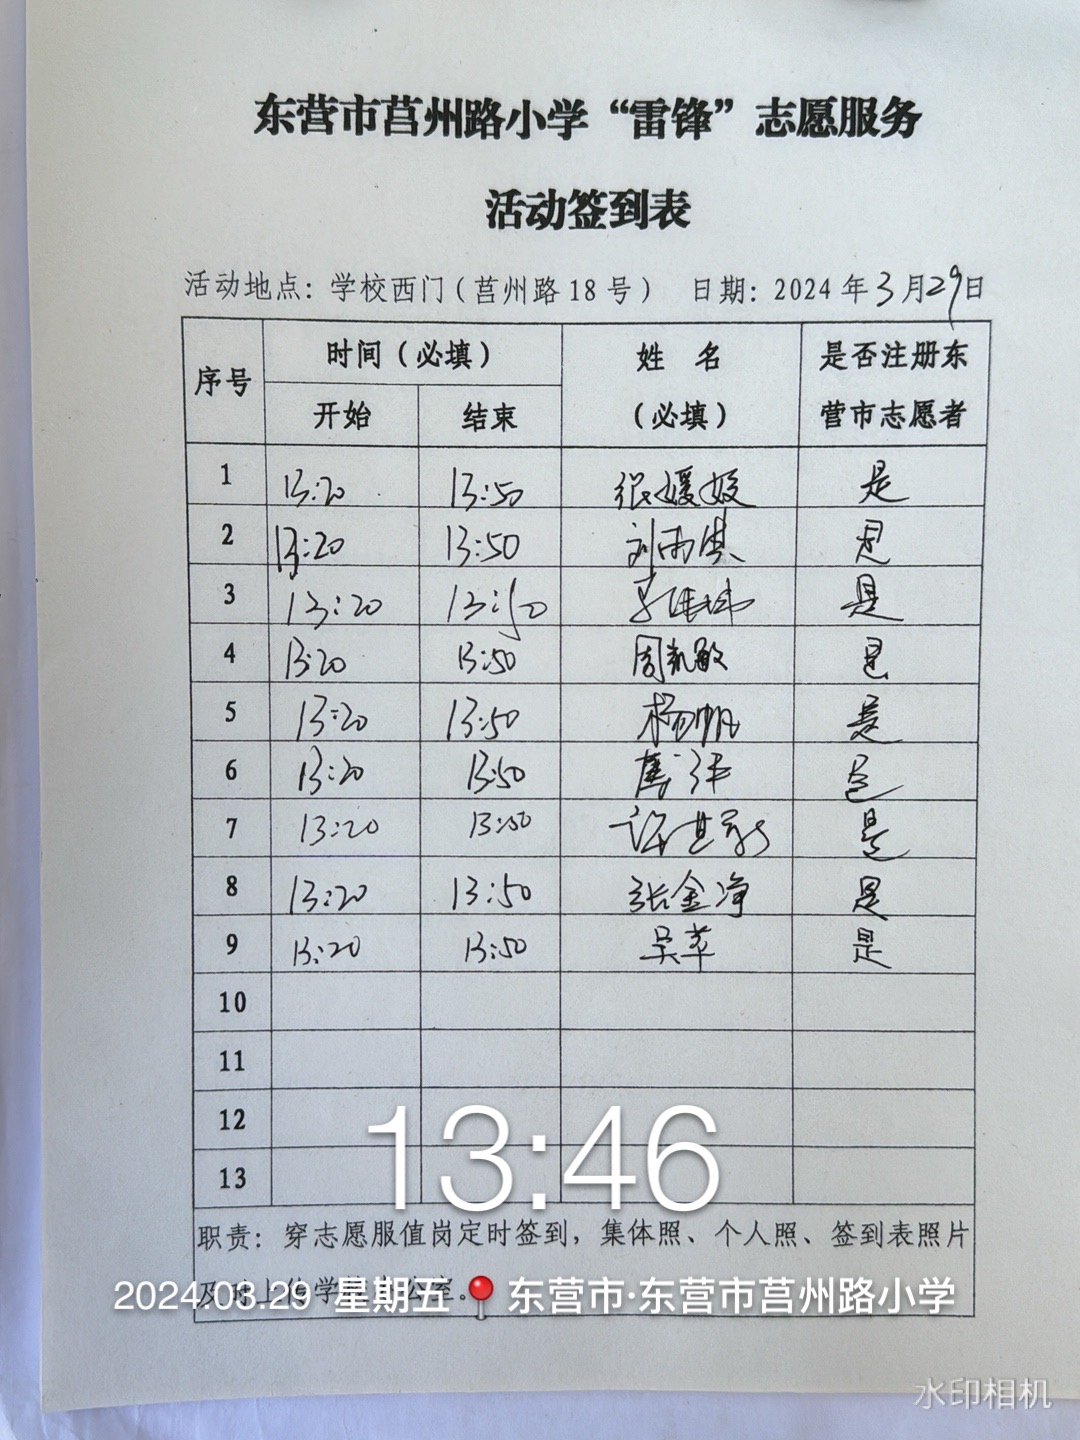 东营市莒州路小学“雷锋”志愿服务
活动签到表
活动地点：学校西门（莒州路18号） 日期：2024年3月29日
序号 时间（必填） 姓 名（必填） 是否注册东营市志愿者
开始 结束
1 13:20 13:50 张媛媛 是
2 13:20 13:50 刘雨淇 是
3 13:20 13:50 是
4 13:20 13:50 周凯敏 是
5 13:20 13:50 杨帆 是
6 13:20 13:50 是
7 13:20 13:50 是
8 13:20 13:50 张金净 是
9 13:20 13:50 吴苹 是
10
11
12
13
13:46
职责：穿志愿服值岗定时签到，集体照、个人照、签到表照片
及时上传学 公室。
2024.03.29 星期五 东营市·东营市莒州路小学
水印相机